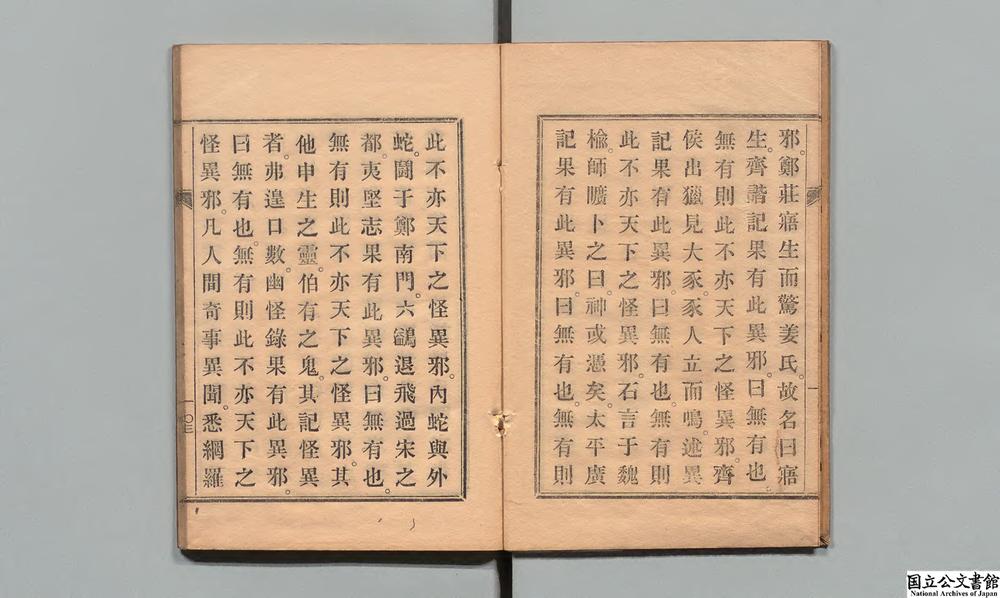 邪。鄭莊寤生而驚姜氏。故名曰寤
生。齊諧記果有此異邪。曰無有也。
無有則此不亦天下之怪異邪。齊
侯出獵見大豕。豕人立而鳴。述異
記果有此異邪。曰無有也。無有則
此不亦天下之怪異邪。石言于魏
楡。師曠卜之曰神或憑矣。太平廣
記果有此異邪。曰無有也。無有則
此不亦天下之怪異邪。內蛇與外
蛇。鬪于鄭南門。六鷁退飛過宋之
都。夷堅志果有此異邪。曰無有也。
無有則此不亦天下之怪異邪。其
他申生之靈。伯有之鬼。其記怪異
者。弗遑口數。幽怪錄果有此異邪。
曰無有也。無有則此不亦天下之
怪異邪。凡人間奇事異聞。悉網羅
国立公文書館
National Archives of Japan